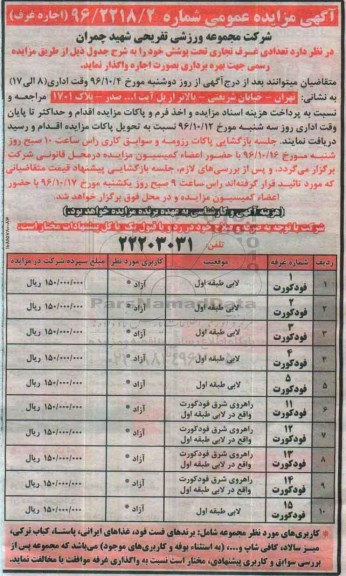 آگهی مزایده عمومی شماره ۹۶/۲۲۱۸/۲ (اجاره غرف)
شرکت مجموعه ورزشی تفریحی شهید چمران
در نظر دارد تعدادی غرف تجاری تحت پوشش خود را به شرح جدول ذیل از طریق مزایده
رسمی جهت بهره برداری بصورت اجاره واگذار نماید.
متقاضیان میتوانند بعد از درج آگهی از روز دوشنبه مورخ ۹۶/۱۰/۴ وقت اداری (۸ الی ۱۷)
به نشانی: تهران - خیابان شریعتی - بالاتر از پل آیت ا... صدر - پلاک ۱۷۰۱ مراجعه و
نسبت به پرداخت هزینه اسناد مزایده و اخذ فرم و پاکات مزایده اقدام و حداکثر تا پایان
وقت اداری روز سه شنبه مورخ ۹۶/۱۰/۱۲ نسبت به تحویل پاکات مزایده اقدام و رسید
دریافت نمایند. جلسه بازگشایی پاکات رزومه و سوابق کاری راس ساعت ۱۰ صبح روز
شنبه مورخ ۹۶/۱۰/۱۶ با حضور اعضاء کمیسیون مزایده در محل قانونی شرکت
برگزار می‌گردد. و پس از بررسی‌های لازم، جلسه بازگشایی پیشنهاد قیمت متقاضیانی
که مورد تائید قرار گرفته‌اند راس ساعت ۹ صبح روز یکشنبه مورخ ۹۶/۱۰/۱۷ با حضور
اعضاء کمیسیون مزایده و در محل فوق برگزار خواهد شد.
(هزینه آگهی و کارشناسی به عهده برنده مزایده خواهد بود.)
شرکت با توجه به صرفه و صلاح خود در رد و یا قبول یک یا کل پیشنهادات مختار است.
تلفن ۲۲۲۰۳۰۳۱
ردیف شماره غرفه موقعیت کاربری مورد نظر مبلغ سپرده شرکت در مزایده
۱ ۱ فودکورت لابی طبقه اول آزاد * ۱۵۰/۰۰۰/۰۰۰ ریال
۲ ۲ فودکورت لابی طبقه اول آزاد * ۱۵۰/۰۰۰/۰۰۰ ریال
۳ ۳ فودکورت لابی طبقه اول آزاد * ۱۵۰/۰۰۰/۰۰۰ ریال
۴ ۴ فودکورت لابی طبقه اول آزاد * ۱۵۰/۰۰۰/۰۰۰ ریال
۵ ۵ فودکورت لابی طبقه اول آزاد * ۱۵۰/۰۰۰/۰۰۰ ریال
۶ ۱۱ فودکورت راهروی شرق فودکورت واقع در لابی طبقه اول آزاد * ۱۵۰/۰۰۰/۰۰۰ ریال
۷ ۱۲ فودکورت راهروی شرق فودکورت واقع در لابی طبقه اول آزاد * ۱۵۰/۰۰۰/۰۰۰ ریال
۸ ۱۳ فودکورت راهروی شرق فودکورت واقع در لابی طبقه اول آزاد * ۱۵۰/۰۰۰/۰۰۰ ریال
۹ ۱۴ فودکورت راهروی شرق فودکورت واقع در لابی طبقه اول آزاد * ۱۵۰/۰۰۰/۰۰۰ ریال
۱۰ ۱۵ فودکورت راهروی شرق فودکورت واقع در لابی طبقه اول آزاد * ۱۵۰/۰۰۰/۰۰۰ ریال
* کاربری‌های مورد نظر مجموعه شامل: برندهای فست فود، غذاهای ایرانی، پاستا، کباب ترکی،
میز سالاد، کافی شاپ و....، (به استثناء بوفه و کاربری‌های موجود) می‌باشد که مجموعه پس از
بررسی سوابق و کاربری پیشنهادی، مختار است نسبت به واگذاری غرفه موافقت یا مخالفت نماید.